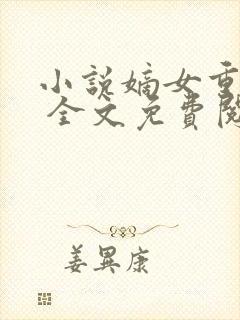 小說嫡女重
全文免費閱
姜異康